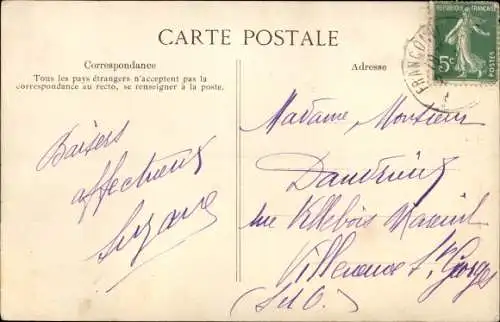 CARTE POSTALE
Correspondance
Tous les pays étrangers n'acceptent pas la
correspondance au recto, se renseigner à la poste.
Adresse
RÉPUBLIQUE FRANÇAISE
5c
POSTES
Baisers
affectueux
Suzanne
Madame Monsieur
rue Villebois Mareuil
Villeneuve St Georges
(S et O.)